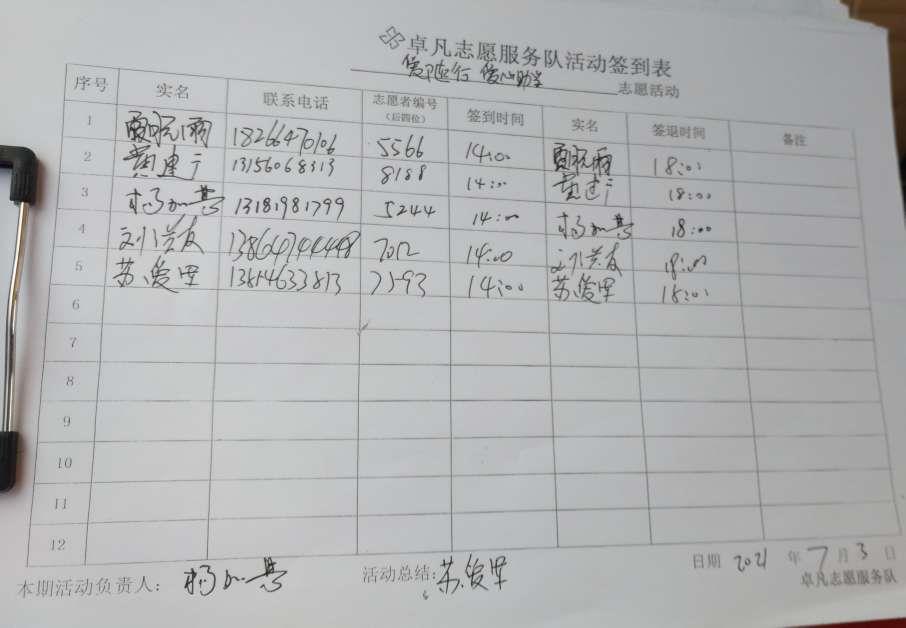 卓凡志愿服务队活动签到表
爱随行 爱心助学 志愿活动
序号 实名 联系电话 志愿者编号（后四位） 签到时间 实名 签退时间 备注
1 18266470106 5566 14:00 18:00
2 黄建宁 13156068313 8188 14:00 黄建宁 18:00
3 杨如慧 13181981799 5244 14:00 杨如慧 18:00
4 刘兰友 13864744448 7012 14:00 刘兰友 18:00
5 苏爱军 14:00 苏爱军 18:00
6
7
8
9
10
11
12
本期活动负责人： 杨如慧 活动总结： 苏爱军 日期 2021 年 7 月 3 日
卓凡志愿服务队